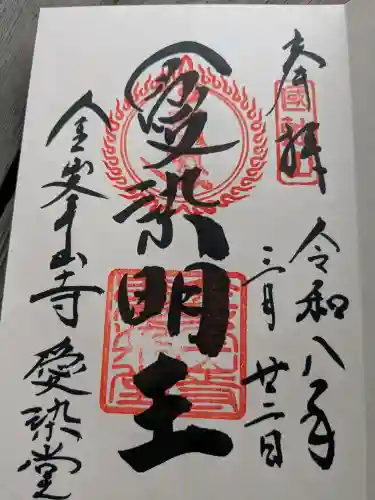 奉拝
令和八年
三月廿二日
愛染明王
金峯山寺 愛染堂